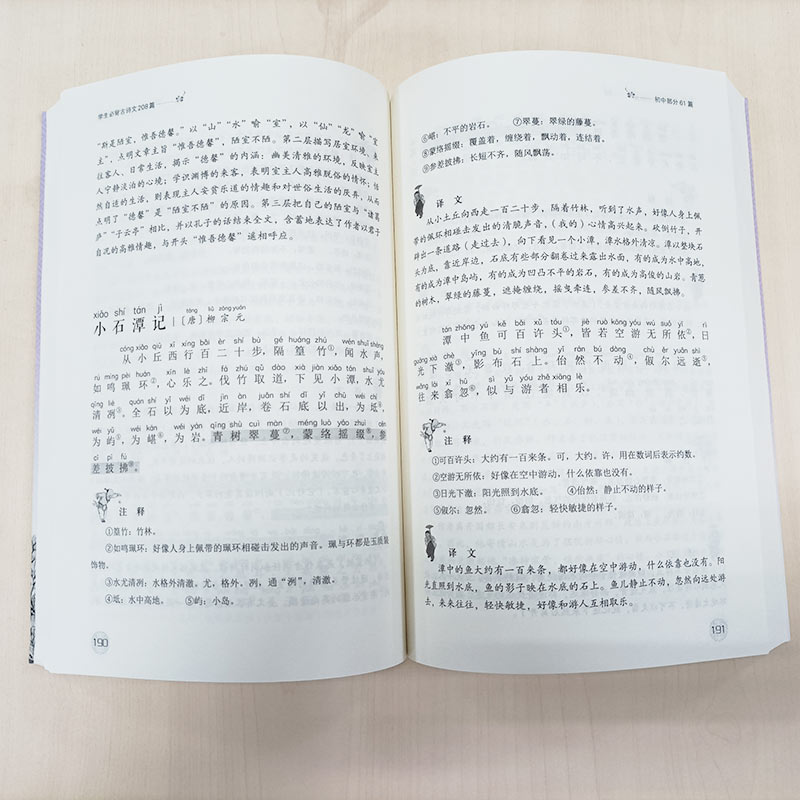 学生必背古诗文208篇
“斯是陋室，惟吾德馨。”以“山”“水”喻“室”，以“仙”“龙”喻“室
主”，点明文章主旨“惟吾德馨”，陋室不陋。第二层描写居室环境、来
往客人、日常生活，揭示“德馨”的内涵：幽美清雅的环境，反映室主
人宁静淡泊的心境；学识渊博的来客，表明室主人高雅脱俗的情怀；恬
然自适的生活，则表现主人安贫乐道的情趣和对世俗生活的厌弃，从而
点明了“德馨”是“陋室不陋”的原因。第三层把自己的陋室与“诸葛
庐”“子云亭”相比，并以孔子的话结束全文，含蓄地表达了作者以君子
自况的高雅情趣，与开头“惟吾德馨”遥相呼应。
xiǎo shí tán jì
小石潭记
táng liǔ zōng yuán
[唐] 柳宗元
cóng xiǎo qiū xī xíng bǎi èr shí bù gé huáng zhú wén shuǐ shēng
从小丘西行百二十步，隔篁竹①，闻水声，
rú míng pèi huán xīn lè zhī fá zhú qǔ dào xià jiàn xiǎo tán shuǐ yóu
如鸣珮环②，心乐之。伐竹取道，下见小潭，水尤
qīng liè quán shí yǐ wéi dǐ jìn àn juǎn shí dǐ yǐ chū wéi chí
清冽③。全石以为底，近岸，卷石底以出，为坻④，
wéi yǔ wéi kān wéi yán qīng shù cuì màn méng luò yáo zhuì cēn
为屿⑤，为嵁⑥，为岩。青树翠蔓⑦，蒙络摇缀⑧，参
cī pī fú
差披拂⑨。
注 释
①篁竹：竹林。
②如鸣珮环：好像人身上佩带的珮环相碰击发出的声音。珮与环都是玉质装
饰物。
③水尤清冽：水格外清澈。尤，格外。冽，通“洌”，清澈。
④坻：水中高地。 ⑤屿：小岛。
190
初中部分61篇
⑥嵁：不平的岩石。 ⑦翠蔓：翠绿的藤蔓。
⑧蒙络摇缀：覆盖着，缠绕着，飘动着，连结着。
⑨参差披拂：长短不齐，随风飘荡。
译 文
从小土丘向西走一百二十步，隔着竹林，听到了水声，好像人身上佩
带的佩环相碰击发出的清脆声音，（我的）心情高兴起来。砍倒竹子，开
辟出一条道路（走过去），向下看见一个小潭，潭水格外清凉。潭以整块石
头为底，靠近岸边，石底有些部分翻卷过来露出水面，有的成为水中高地，
有的成为潭中岛屿，有的成为凹凸不平的岩石，有的成为高俊的山岩。青葱
的树木，翠绿的藤蔓，遮掩缠绕，摇曳牵连，参差不齐，随风飘拂。
tán zhōng yú kě bǎi xǔ tóu jiē ruò kōng yóu wú suǒ yī rì
潭中鱼可百许头①，皆若空游无所依②，日
guāng xià chè yǐng bù shí shàng yǐ rán bú dòng chù ěr yuǎn shì
光下澈③，影布石上。佁然不动④，俶尔远逝⑤，
wǎng lái xī hū sì yǔ yóu zhě xiāng lè
往来翕忽⑥，似与游者相乐。
注 释
①可百许头：大约有一百来条。可，大约。许，用在数词后表示约数。
②空游无所依：好像在空中游动，什么依靠也没有。
③日光下澈：阳光照到水底。 ④佁然：静止不动的样子。
⑤俶尔：忽然。 ⑥翕忽：轻快敏捷的样子。
译 文
潭中的鱼大约有一百来条，都好像在空中游动，什么依靠也没有。阳
光直照到水底，鱼的影子映在水底的石上。鱼儿静止不动，忽然向远处游
去，来来往往，轻快敏捷，好像和游人互相取乐。
191